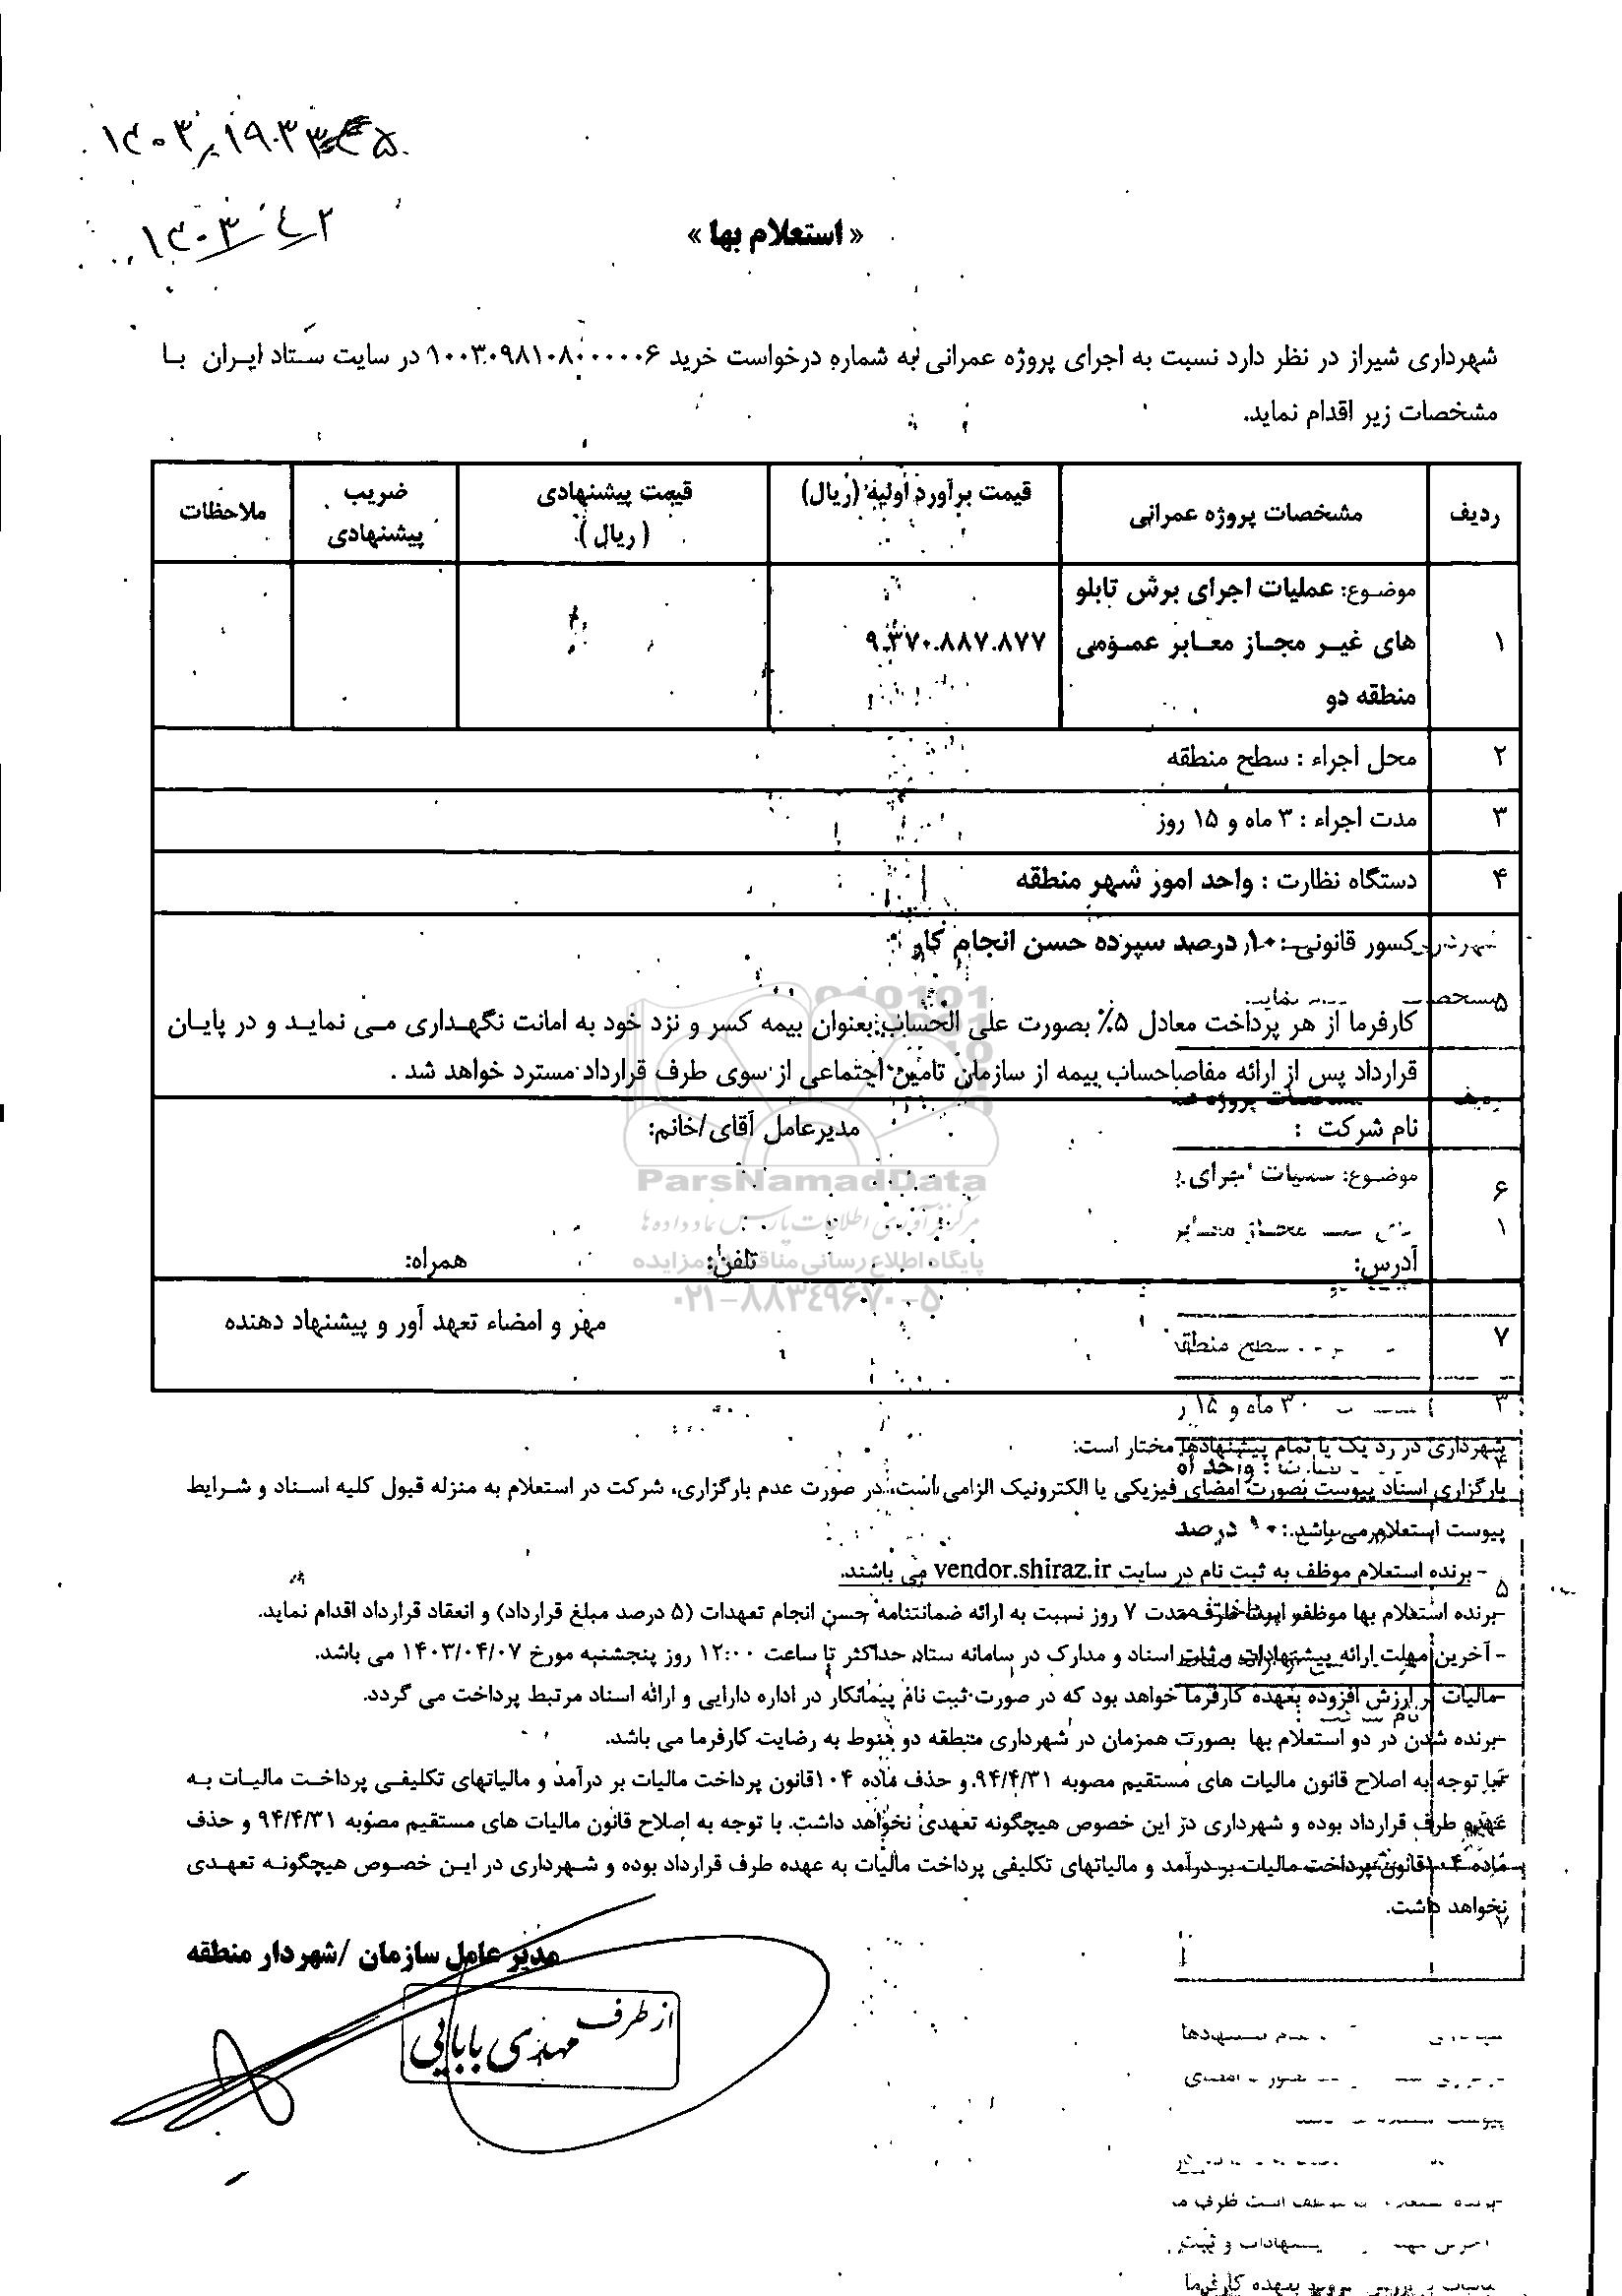 ۱۴۰۳/۴/۲
« استعلام بها »
شهرداری شیراز در نظر دارد نسبت به اجرای پروژه عمرانی به شماره درخواست خرید ۱۰۰۳۰۹۸۱۰۸۰۰۰۰۰۶ در سایت ستاد ایران با
مشخصات زیر اقدام نماید.
ردیف مشخصات پروژه عمرانی قیمت برآورد اولیه (ریال) قیمت پیشنهادی (ریال) ضریب پیشنهادی ملاحظات
موضوع: عملیات اجرای برش تابلو
۱ های غیر مجاز معابر عمومی ۹.۳۷۰.۸۸۷.۸۷۷
منطقه دو
۲ محل اجراء : سطح منطقه
۳ مدت اجراء : ۳ ماه و ۱۵ روز
۴ دستگاه نظارت : واحد امور شهر منطقه
کسور قانونی: ۱۰ درصد سپرده حسن انجام کار
۵ کارفرما از هر پرداخت معادل ۵% بصورت علی الحساب بعنوان بیمه کسر و نزد خود به امانت نگهداری می نماید و در پایان
قرارداد پس از ارائه مفاصاحساب بیمه از سازمان تامین اجتماعی از سوی طرف قرارداد مسترد خواهد شد .
نام شرکت : مدیرعامل آقای/خانم:
۶
آدرس: تلفن: همراه:
۷ مهر و امضاء تعهد آور و پیشنهاد دهنده
ParsNamadData
پایگاه اطلاع رسانی مناقصه و مزایده
۰۲۱-۸۸۳۴۹۶۷۰-۵
شهرداری در رد یک یا تمام پیشنهادها مختار است:
بارگزاری اسناد پیوست بصورت امضای فیزیکی یا الکترونیک الزامی است، در صورت عدم بارگزاری، شرکت در استعلام به منزله قبول کلیه اسناد و شرایط
پیوست استعلام می باشد.
- برنده استعلام موظف به ثبت نام در سایت vendor.shiraz.ir می باشند.
-برنده استعلام بها موظف است ظرف مدت ۷ روز نسبت به ارائه ضمانتنامه حسن انجام تعهدات (۵ درصد مبلغ قرارداد) و انعقاد قرارداد اقدام نماید.
- آخرین مهلت ارائه پیشنهادات و ثبت اسناد و مدارک در سامانه ستاد حداکثر تا ساعت ۱۲:۰۰ روز پنجشنبه مورخ ۱۴۰۳/۰۴/۰۷ می باشد.
-مالیات بر ارزش افزوده بعهده کارفرما خواهد بود که در صورت ثبت نام پیمانکار در اداره دارایی و ارائه اسناد مرتبط پرداخت می گردد.
-برنده شدن در دو استعلام بها بصورت همزمان در شهرداری منطقه دو منوط به رضایت کارفرما می باشد.
-با توجه به اصلاح قانون مالیات های مستقیم مصوبه ۹۴/۴/۳۱ و حذف ماده ۱۰۴ قانون پرداخت مالیات بر درآمد و مالیاتهای تکلیفی پرداخت مالیات به
عهده طرف قرارداد بوده و شهرداری در این خصوص هیچگونه تعهدی نخواهد داشت. با توجه به اصلاح قانون مالیات های مستقیم مصوبه ۹۴/۴/۳۱ و حذف
ماده ۱۰۴ قانون پرداخت مالیات بر درآمد و مالیاتهای تکلیفی پرداخت مالیات به عهده طرف قرارداد بوده و شهرداری در این خصوص هیچگونه تعهدی
نخواهد داشت.
مدیر عامل سازمان /شهردار منطقه
از طرف
مهدی بابایی